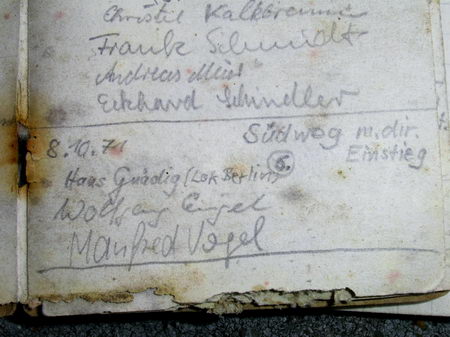 Christel Kalkbrenner
Frank Schmidt
Andreas Meist
Eckhard Schindler
8.10.71 Südweg m. dir.
Einstieg
Hans Gnädig (Lok Berlin) 6.
Wolfgang Engel
Manfred Vogel